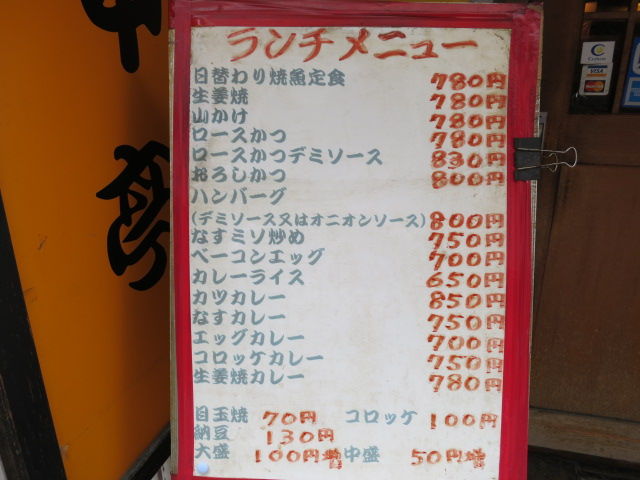 ランチメニュー
日替わり焼魚定食 780円
生姜焼 780円
山かけ 780円
ロースかつ 780円
ロースかつデミソース 830円
おろしかつ 800円
ハンバーグ
(デミソース又はオニオンソース) 800円
なすミソ炒め 750円
ベーコンエッグ 700円
カレーライス 650円
カツカレー 850円
なすカレー 750円
エッグカレー 700円
コロッケカレー 750円
生姜焼カレー 780円
目玉焼 70円 コロッケ 100円
納豆 130円
大盛 100円増 中盛 50円増
VISA